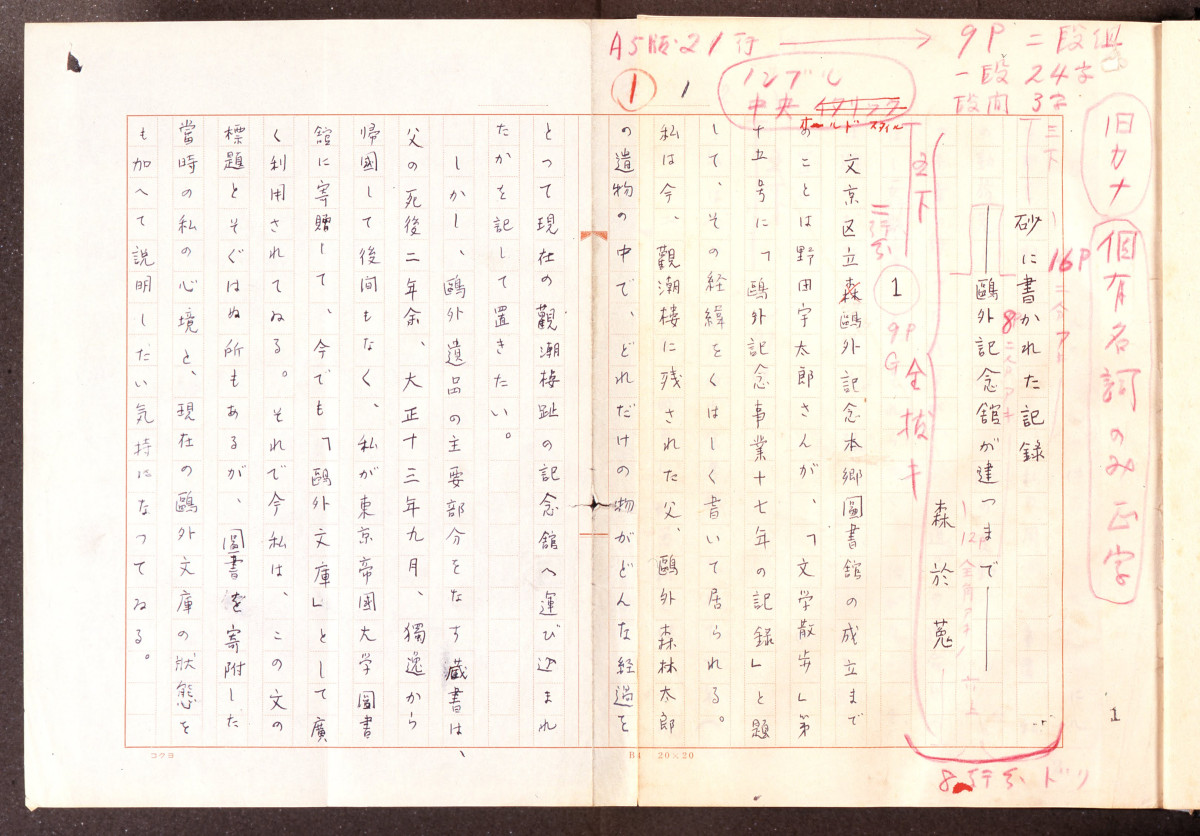 A5版・21行 → 9P 二段組
一段 24字
段間 3字
ノンブル
中央 イタリック
オールド スタイル
1
1
旧カナ
個有名詞のみ正字
三下
16P
砂に書かれた記録
――鷗外記念館が建つまで――
8P
森 於菟
12P
全角アキ
五下
全抜キ
二行分
1
9P
G
文京区立森鷗外記念本郷圖書館の成立まで
のことは野田宇太郎さんが、「文学散歩」第
十五号に「鷗外記念事業十七年の記録」と題
して、その経緯をくはしく書いて居られる。
私は今、觀潮楼に残された父、鷗外森林太郎
の遺物の中で、どれだけの物がどんな経過を
とつて現在の觀潮楼趾の記念館へ運び込まれ
たかを記して置きたい。
しかし、鷗外遺品の主要部分をなす藏書は、
父の死後二年余、大正十三年九月、獨逸から
帰國して後間もなく、私が東京帝國大学圖書
館に寄贈して、今でも「鷗外文庫」として廣
く利用されてゐる。それで今私は、この文の
標題とそぐはぬ所もあるが、圖書を寄附した
當時の私の心境と、現在の鷗外文庫の状態を
も加へて説明したい気持になつてゐる。
8行分ドリ
1
コクヨ
B4 20×20